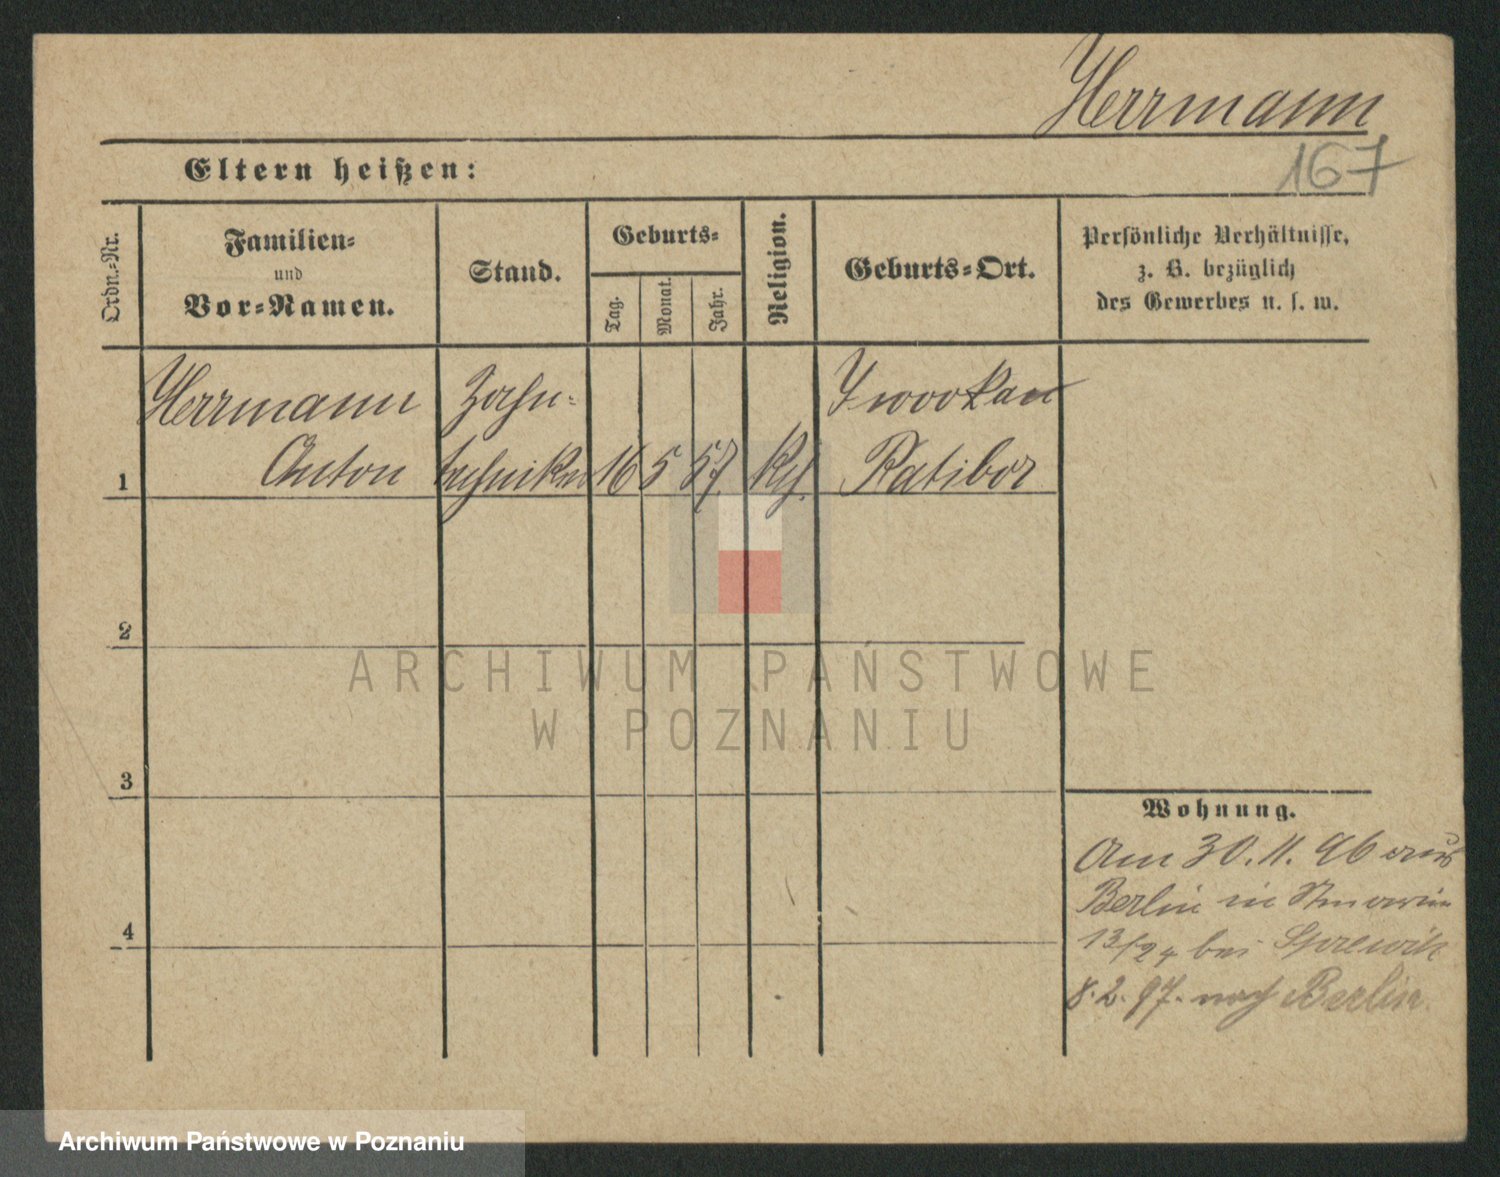 Herrmann
167
Eltern heißen:
Ordn.-Nr.
Familien-
und
Vor-Namen.
Stand.
Geburts-
Tag.
Monat.
Jahr.
Religion.
Geburts-Ort.
Persönliche Verhältnisse,
z. B. bezüglich
des Gewerbes u. s. w.
Herrmann
Zahn-
1
Anton
techniker
16
5
57
kth.
Ratibor
2
ARCHIWUM PAŃSTWOWE
W POZNANIU
3
Wohnung.
Am 30. 11. 96 aus
Berlin in
13/24 bei
4
8. 2. 97. nach Berlin.
Archiwum Państwowe w Poznaniu